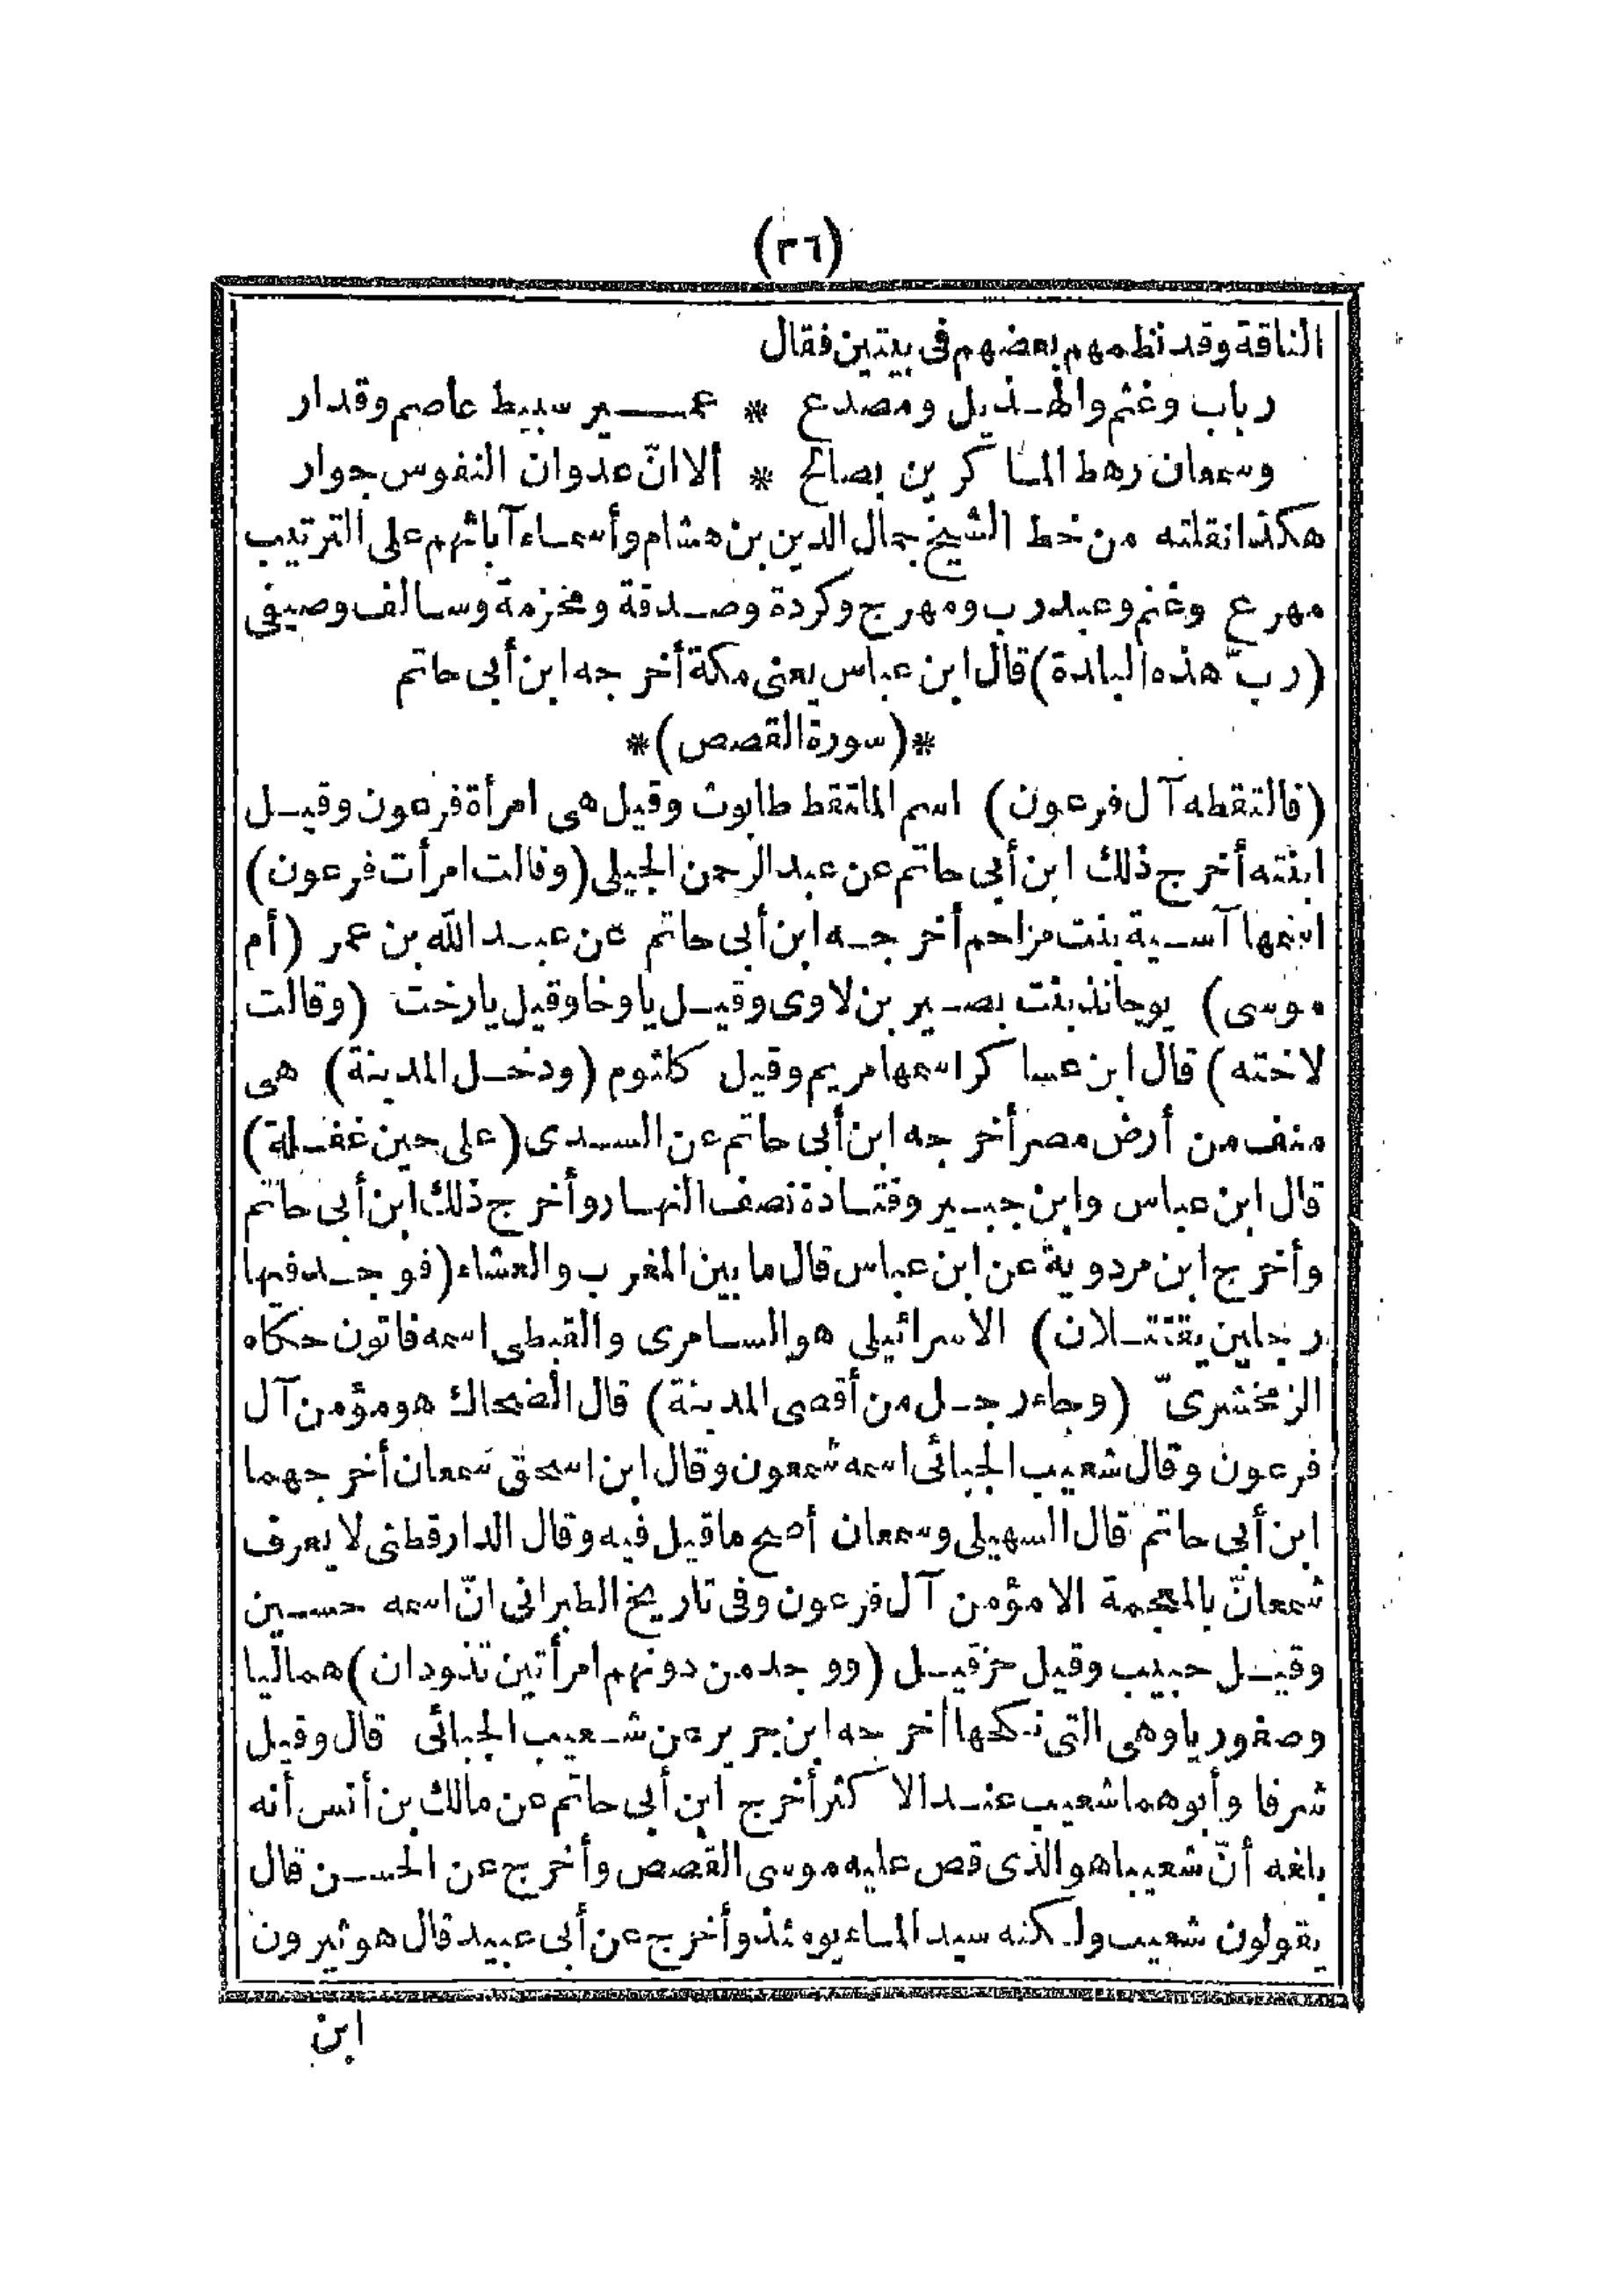 (٣٦)
الناقة وقد نظمهم بعضهم فى بيتين فقال
رباب وغنم والهـذيل ومصدع * عمـــير سبيط عاصم وقدار
وسمعان رهط الماكرين بصالح * ألا انّ عدوان النفوس جوار
هكذا نقلته من خط الشيخ جمال الدين بن هشام وأسمـاء آبائهم على الترتيب
مهرع وغنم وعبدرب ومهرج وكردة وصـدقة ومخزمة وسالف وصيفى
(ربّ هذه البلدة) قال ابن عباس يعنى مكة أخرجه ابن أبى حاتم
*(سورة القصص)*
(فالتقطه آل فرعون) اسم الملتقط طابوث وقيل هى امرأة فرعون وقيـل
ابنته أخرج ذلك ابن أبى حاتم عن عبد الرحمن الجبلى (وقالت امرأت فرعون)
اسمها آسـية بنت مزاحم أخرجـه ابن أبى حاتم عن عبـد الله بن عمر (أم
موسى) يوحانذ بنت بصـير بن لاوى وقيـل ياوخا وقيل يارخت (وقالت
لاخته) قال ابن عساكر اسمها مريم وقيل كلثوم (ودخـل المدينة) هى
منف من أرض مصر أخرجه ابن أبى حاتم عن السـدى (على حين غفـلة)
قال ابن عباس وابن جبـير وقتـادة نصف النهـار وأخرج ذلك ابن أبى حاتم
وأخرج ابن مردوية عن ابن عباس قال ما بين المغرب والعشاء (فوجـد فيها
رجلين يقتتـلان) الاسرائيلى هو السـامرى والقبطى اسمه فاتون حكاه
الزمخشرىّ (وجاء رجـل من أقصى المدينة) قال الضحاك هو مؤمن آل
فرعون وقال شعيب الجبائى اسمه شمعون وقال ابن اسحق شمعان أخرجهما
ابن أبى حاتم قال السهيلى وسمعان أصح ما قيل فيه وقال الدارقطنى لا يعرف
شمعان بالمعجمة الا مؤمن آل فرعون وفى تاريخ الطبرانى انّ اسمه حسـين
وقيـل حبيب وقيل حزقيـل (ووجد من دونهم امرأتين تذودان) هما ليا
وصفوريا وهى التى نـكحها أخرجه ابن جرير عن شـعيب الجبائى قال وقيل
شرفا وأبوهما شعيب عنـد الاكثر أخرج ابن أبى حاتم عن مالك بن أنس أنه
بلغه أنّ شعيبا هو الذى قص عليه موسى القصص وأخرج عن الحسـن قال
يقولون شعيب ولـكنه سيد المـاء يومئذ وأخرج عن أبى عبيد قال هو ثيرون
ابن